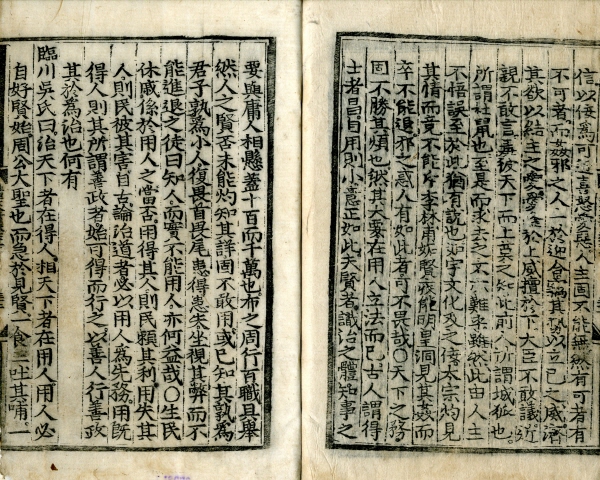 信以侫爲可喜怒愛惡人主固不能無然有可者有
不可者而姦邪之人一於迎合竊其勢以立己之威濟
其欲以結主之愛愛隆於上威擅於下大臣不敢議近
親不敢言毒被天下而上莫之知此前人所謂城狐也
所謂社鼠也至是而求去之不亦難乎雖然此由人主
不悟誤至於此猶有說也如宇文化及之侫太宗灼見
其情而竟不能斥李林甫妬賢嫉能明皇洞見其姦而
卒不能退邪之惑人有如此者可不畏哉○天下之務
固不勝其煩也然其大要在用人立法而已古人謂得
士者昌自用則小意正如此夫賢者識治之體知事之
要與庸人相懸蓋十百而千萬也布之周行百職具擧
然人之賢否未能灼知其詳固不敢用或已知其孰爲
君子孰爲小人復畏首畏尾患得患失坐視其弊而不
能進退之徒曰知人而實不能用人亦何益哉○生民
休戚係於用人之當否用得其人則民賴其利用失其
人則民被其害自古論治道者必以用人爲先務用旣
得人則其所謂善政者始可得而行之以善人行善政
其於爲治也何有
臨川吳氏曰治天下者在得人相天下者在用人用人必
自好賢始周公大聖也而急於見賢一食三吐其哺一